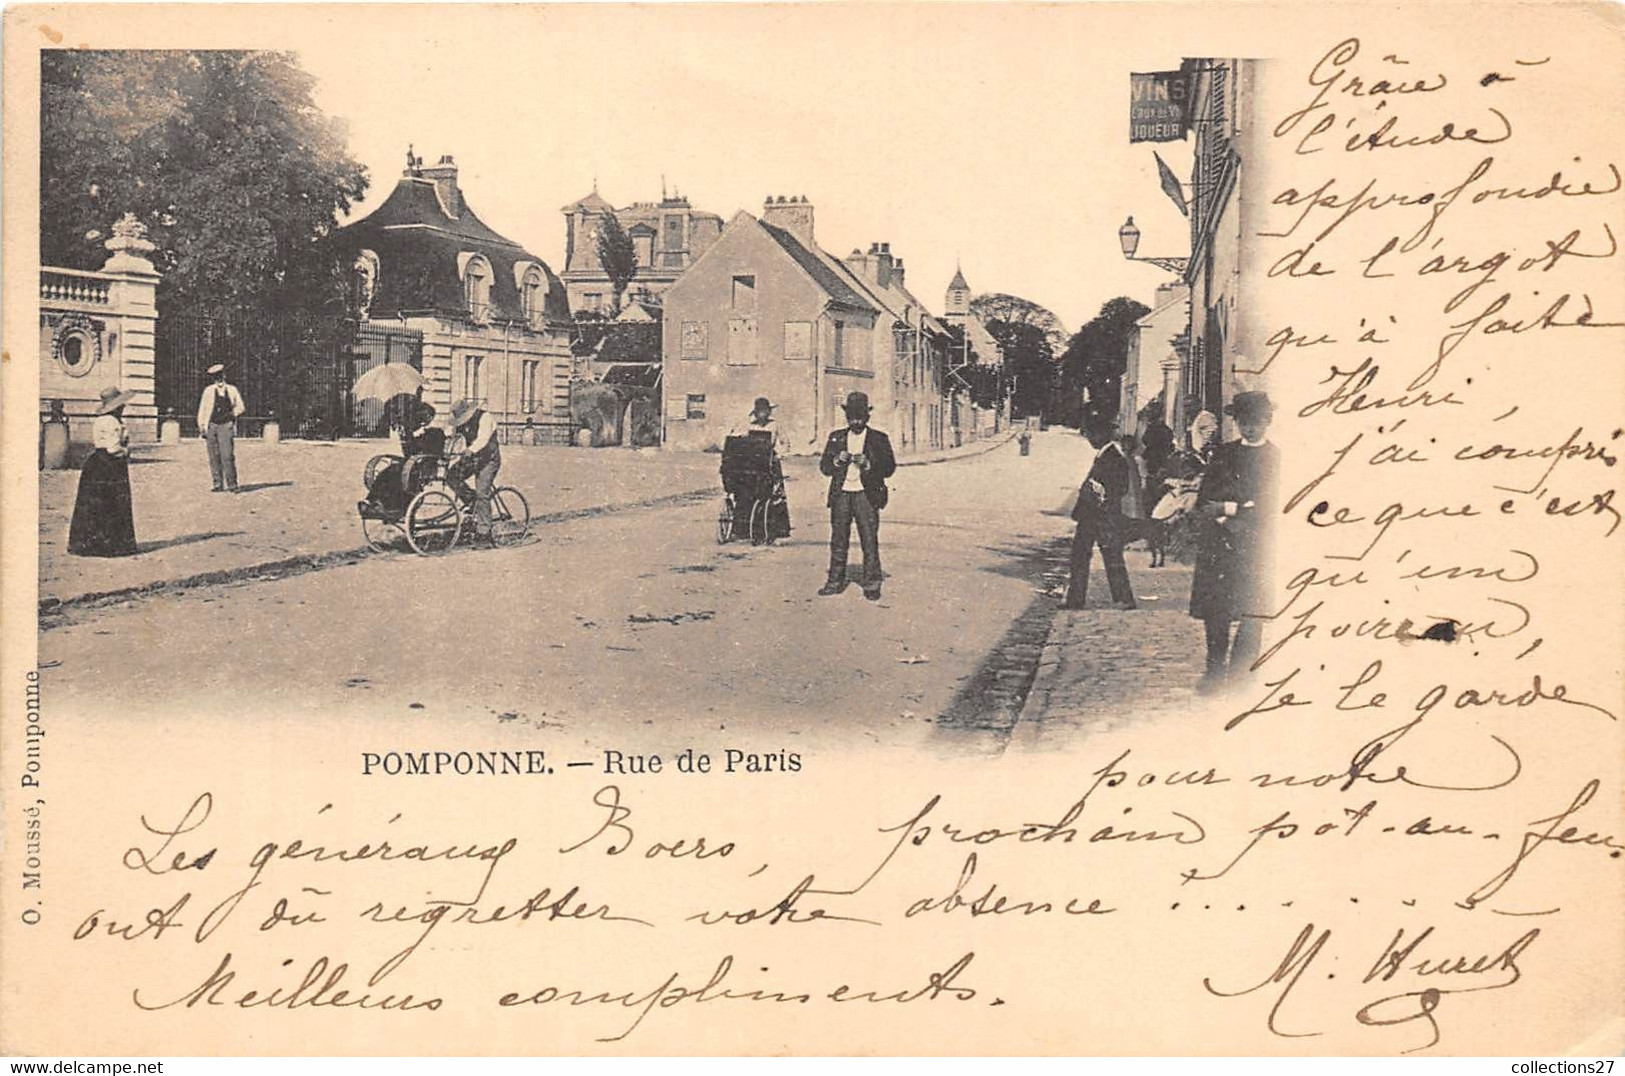 VINS
EAUX DE VIE
LIQUEUR
Grâce à
l'étude
approfondie
de l'argot
qu'à faite
Henri,
j'ai compris
ce que c'est
qu'un
poireau,
je le garde
pour notre
prochain pôt-au-feu.
O. Moussé, Pomponne
POMPONNE. — Rue de Paris
Les généraux Boers,
ont dû regretter votre absence ........
Meilleurs compliments.
M. Huret
collections27